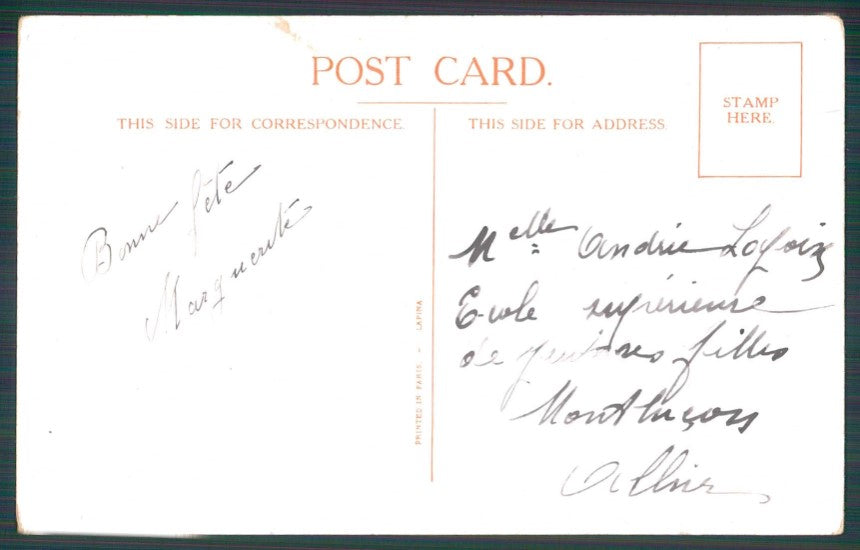 POST CARD.
THIS SIDE FOR CORRESPONDENCE.
THIS SIDE FOR ADDRESS.
STAMP
HERE.
Bonne fête
Marguerite
PRINTED IN PARIS. - LAPINA
Melle Andrée
Ecole supérieure
de jeunes filles
Montluçon
Allier